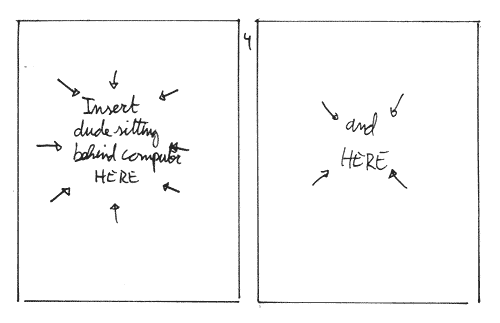 Insert
dude sitting
behind computer
HERE
4
and
HERE